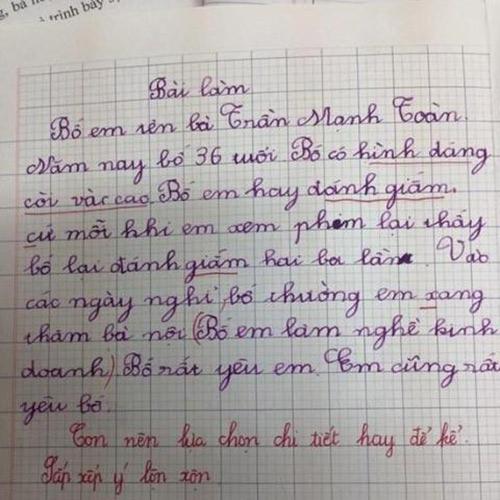 trình bày
Bài làm
Bố em tên là Trần Mạnh Toàn.
Năm nay bố 36 tuổi Bố có hình dáng
còi vàc cao. Bố em hay dánh giắm.
cứ mỗi khi em xem phim lại thấy
bố lại đánh giắm hai ba lần. Vào
các ngày nghỉ, bố thường em xang
thăm bà nội (Bố em làm nghề kinh
doanh). Bố rất yêu em. Em cũng rất
yêu bố.
Con nên lựa chọn chi tiết hay để kể.
Sắp xếp ý lộn xộn